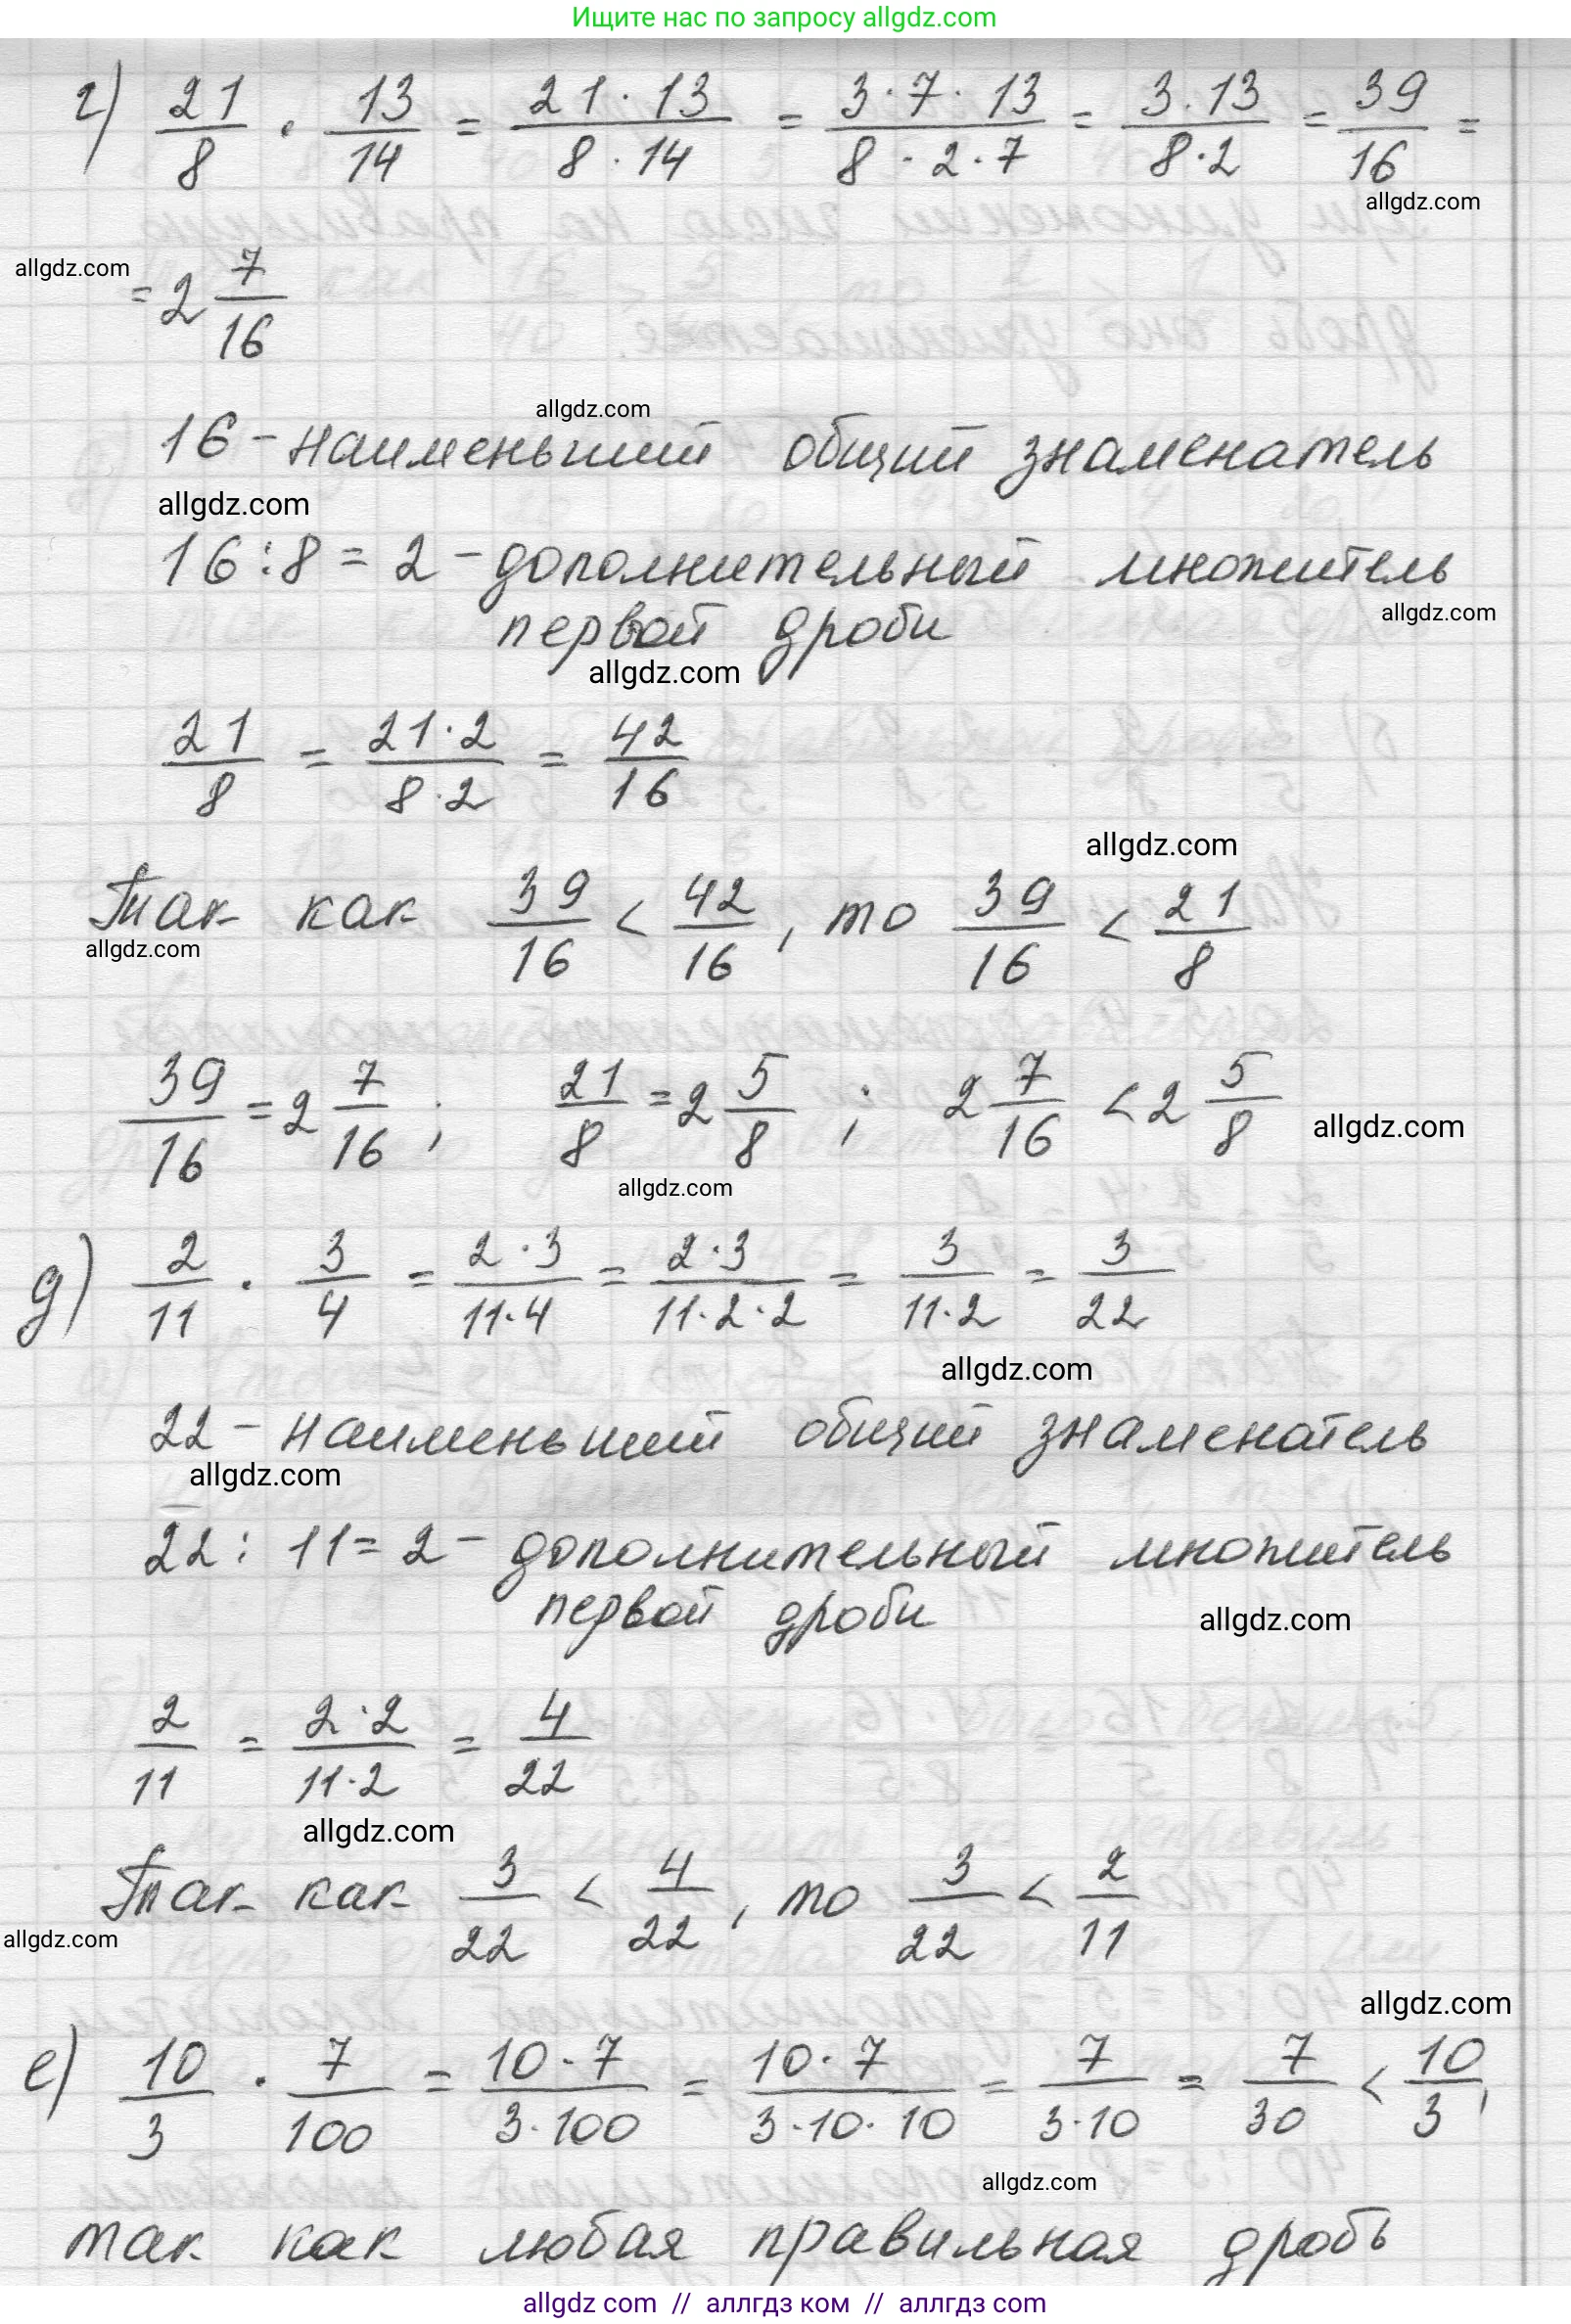 Ищите нас по запросу allgdz.com
г) 21/8 · 13/14 = 21·13/8·14 = 3·7·13/8·2·7 = 3·13/8·2 = 39/16 =
allgdz.com
allgdz.com
= 2 7/16
allgdz.com
16 - наименьший общий знаменатель
allgdz.com
16:8 = 2 - дополнительный множитель
allgdz.com
первой дроби
allgdz.com
21/8 = 21·2/8·2 = 42/16
allgdz.com
Так как 39/16 < 42/16, то 39/16 < 21/8
allgdz.com
39/16 = 2 7/16; 21/8 = 2 5/8; 2 7/16 < 2 5/8
allgdz.com
allgdz.com
д) 2/11 · 3/4 = 2·3/11·4 = 2·3/11·2·2 = 3/11·2 = 3/22
allgdz.com
22 - наименьший общий знаменатель
allgdz.com
22: 11 = 2 - дополнительный множитель
первой дроби
allgdz.com
2/11 = 2·2/11·2 = 4/22
allgdz.com
Так как 3/22 < 4/22, то 3/22 < 2/11
allgdz.com
allgdz.com
е) 10/3 · 7/100 = 10·7/3·100 = 10·7/3·10·10 = 7/3·10 = 7/30 < 10/3,
allgdz.com
так как любая правильная дробь
allgdz com // аллгдз ком // allgdz com